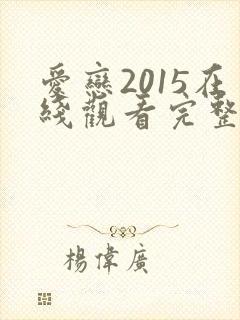 愛戀2015在
綫觀看完整
楊偉廣